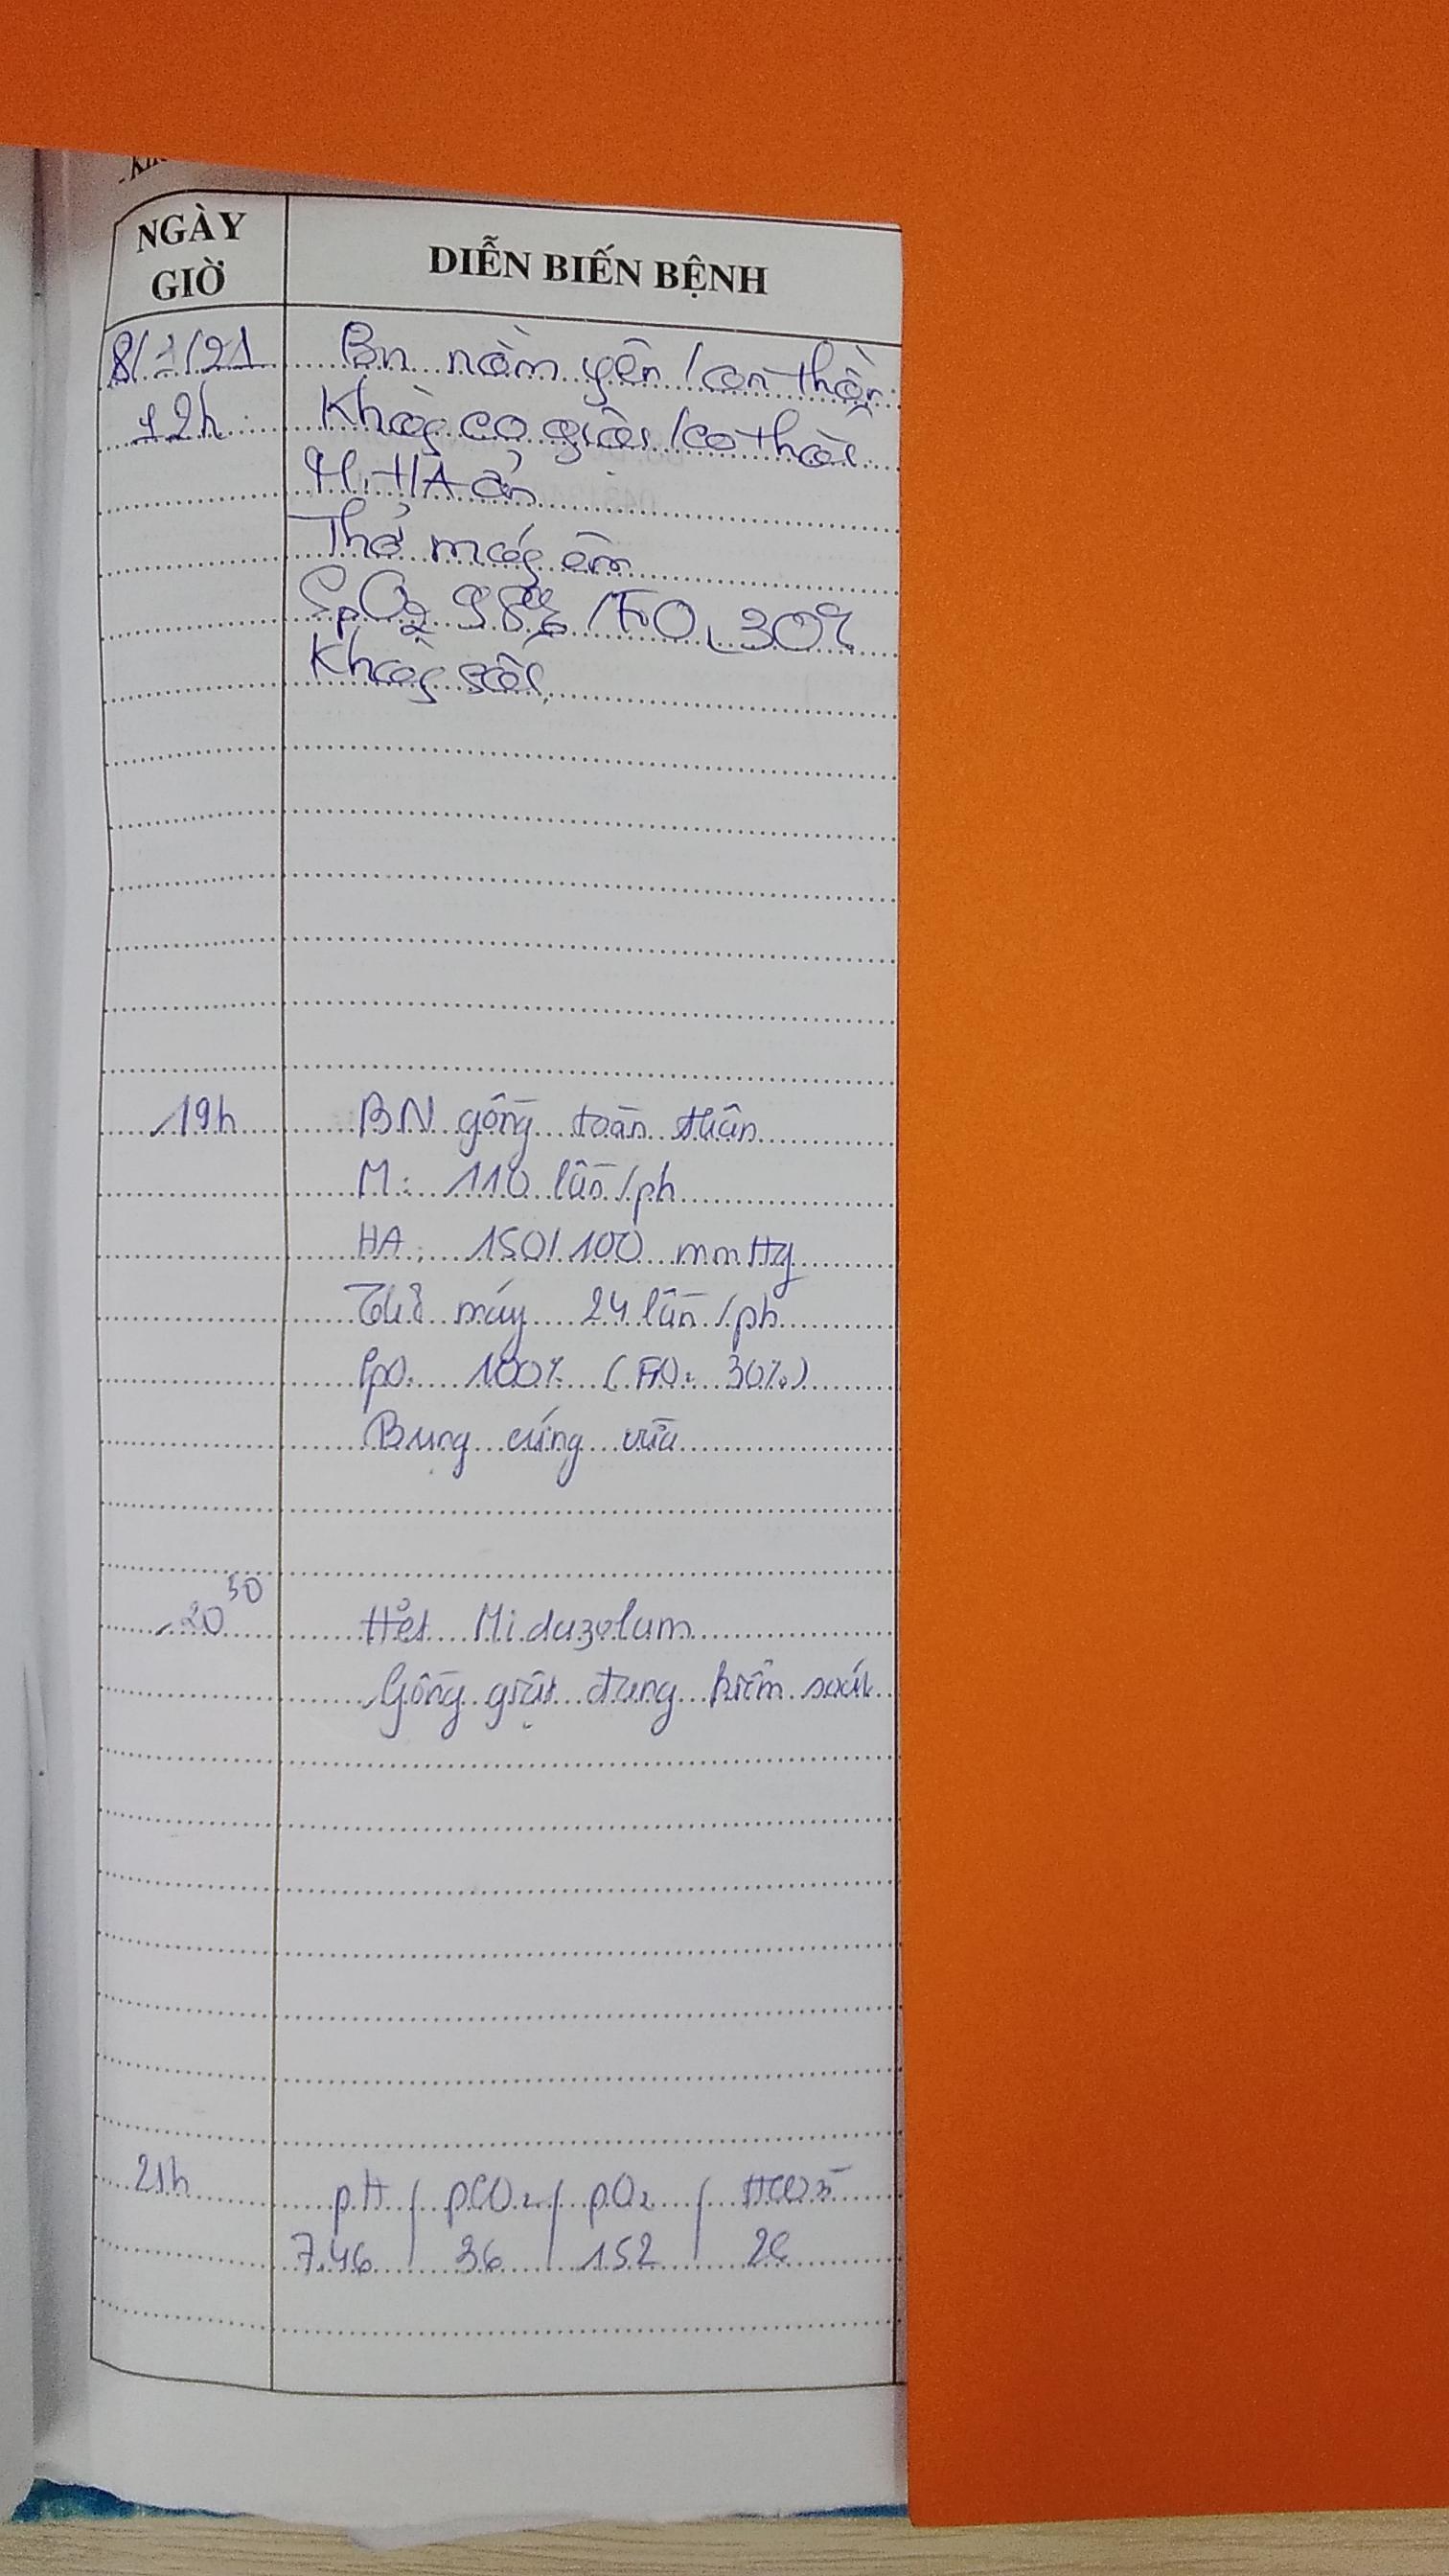 NGÀY
GIỜ
DIỄN BIẾN BỆNH
8/1/21
Bn nằm yên / an thần
12h
Không co giật / co thắt
M, HA ổn
Thở máy êm
SpO2 98% / FiO2 30%
Không sốt
19h
BN gồng toàn thân
M: 110 lần/ph
HA: 150/100 mmHg
Thở máy 24 lần/ph
SpO2 100% (FiO2 30%)
Bụng cứng vừa
20 50
Hết Midazolam
Gồng giật đang kiểm soát
21h
pH / pCO2 / pO2 / HCO3-
7.46 36 152 26